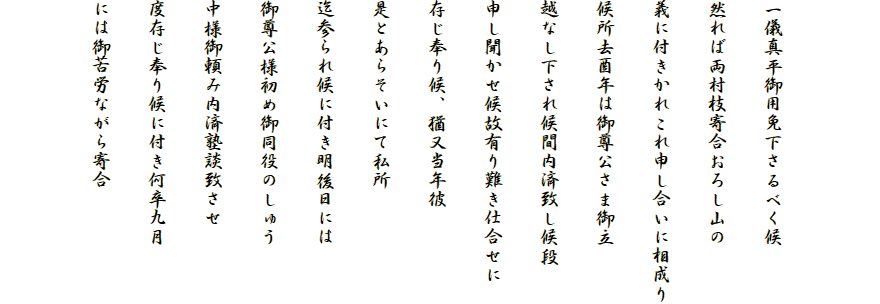 一儀真平御用免下さるべく候
然れば両村枝寄合おろし山の
義に付きかれこれ申し合いに相成り
候所去酉年は御尊公さま御立
越なし下され候間内済致し候段
申し聞かせ候故有り難き仕合せに
存じ奉り候、猶又当年彼
是とあらそいにて私所
迄参られ候に付き明後日には
御尊公様初め御同役のしゅう
中様御頼み内済塾談致させ
度存じ奉り候に付き何卒九月
には御苦労ながら寄合